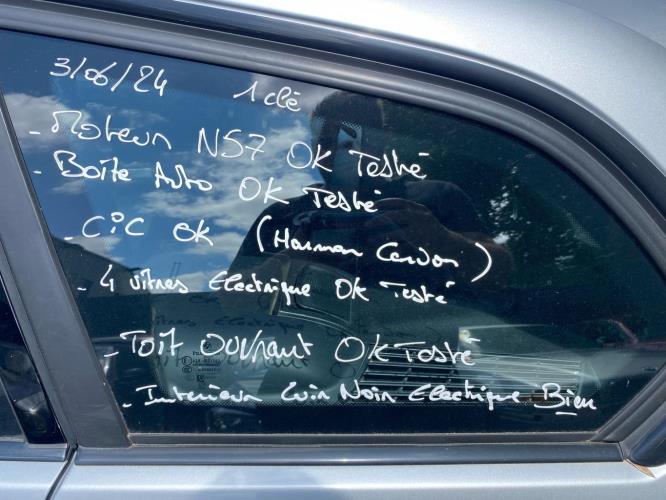 3/06/24 1 clé
- Moteur N57 OK Testé
- Boîte Auto OK Testé
- CiC OK (Harman Cardon)
- 4 vitres Electrique OK Testé
- Toit Ouvrant OK Testé
- Interieur Cuir Noir Electrique Bien